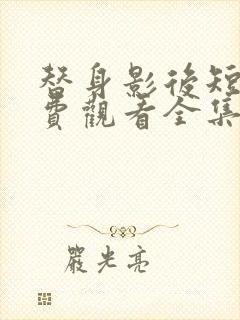 替身影後短
費觀看全集
嚴光亮